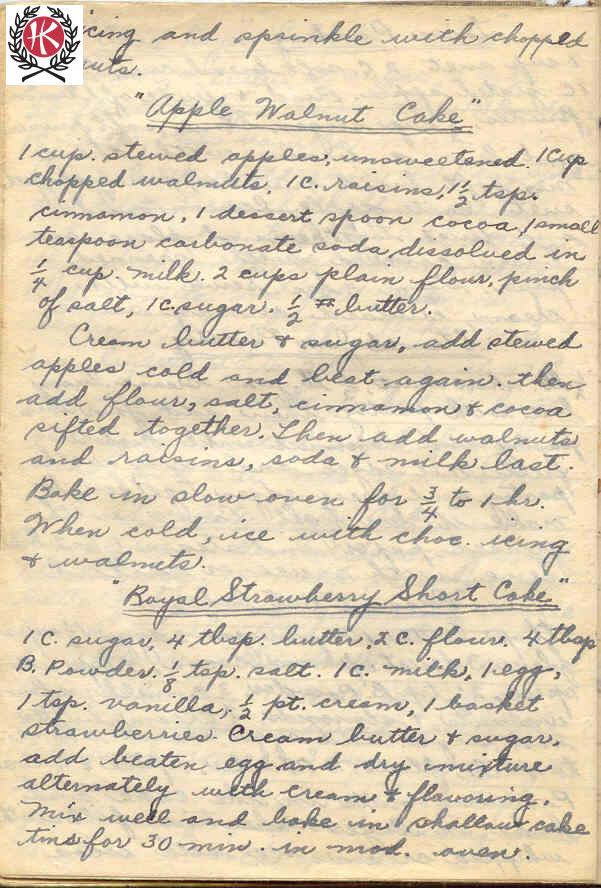 HK
icing and sprinkle with chopped
nuts.
"Apple Walnut Cake"
1 cup. stewed apples, unsweetened. 1 Cup
chopped walnuts, 1 c. raisins, 1 1/2 tsp.
cinnamon, 1 dessert spoon cocoa, 1 small
teaspoon carbonate soda dissolved in
1/4 cup. milk. 2 cups plain flour, pinch
of salt, 1 c. sugar. 1/2 # butter.
Cream butter & sugar, add stewed
apples cold and beat again. then
add flour, salt, cinnamon & cocoa
sifted together. Then add walnuts
and raisins, soda & milk last.
Bake in slow oven for 3/4 to 1 hr.
When cold, ice with choc. icing
& walnuts.
"Royal Strawberry Short Cake"
1 C. sugar, 4 tbsp. butter, 2 C. flour. 4 tbsp
B. Powder. 1/8 tsp. salt. 1 C. milk, 1 egg,
1 tsp. vanilla, 1/2 pt. cream, 1 basket
strawberries. Cream butter & sugar,
add beaten egg and dry mixture
alternately with cream & flavoring.
Mix well and bake in shallow cake
tins for 30 min. in mod. oven.